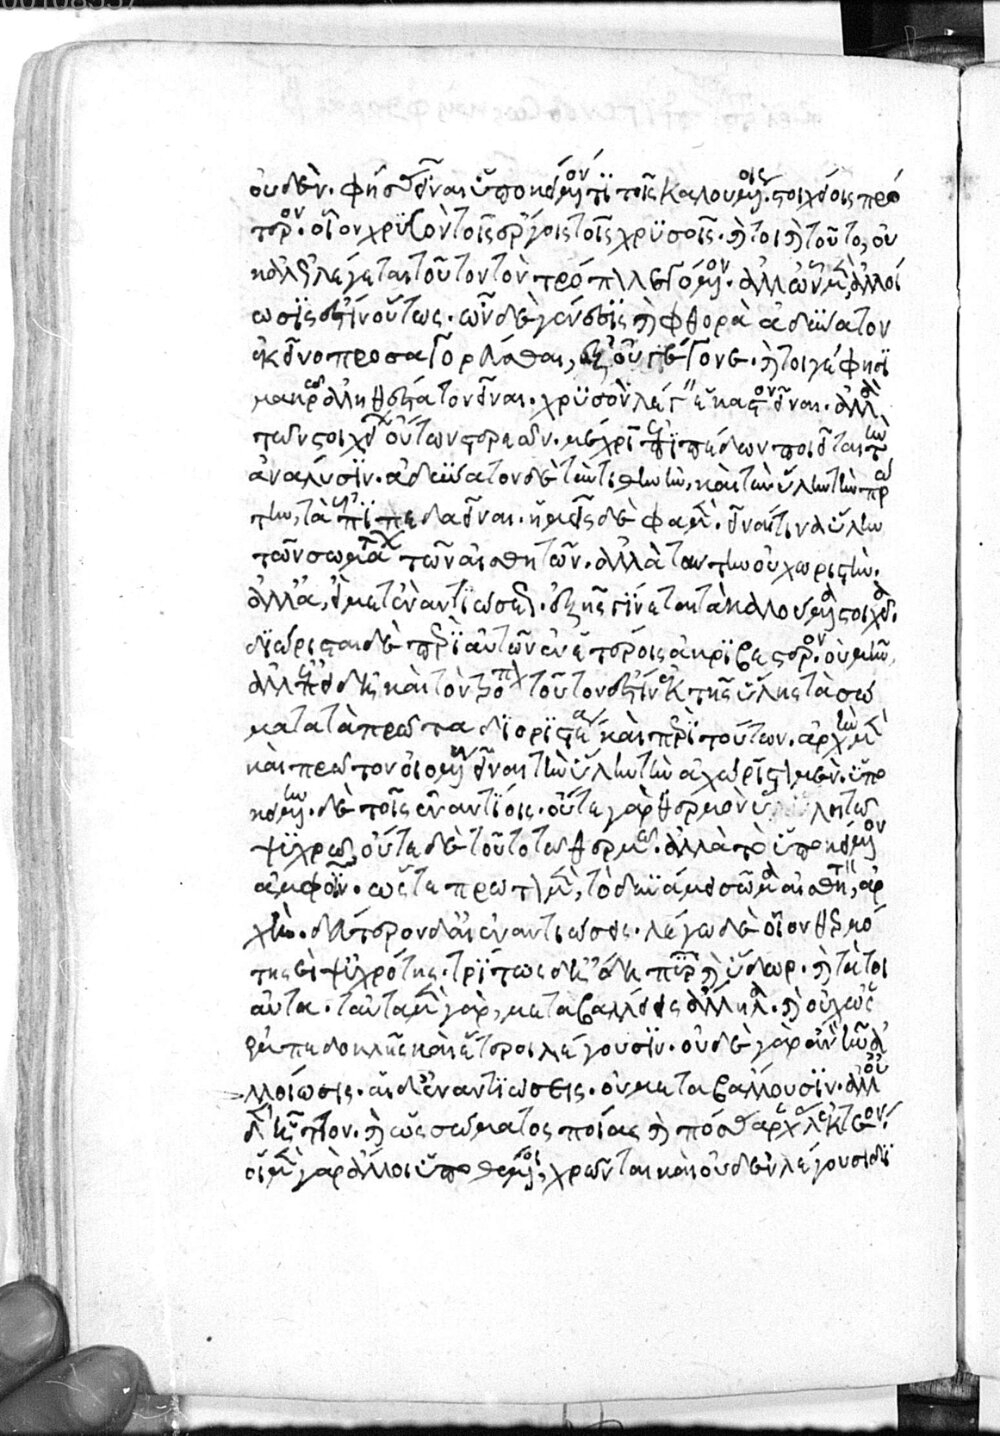 οὐδέν. φησὶ γὰρ εἶναι ὑποκείμενόν τι τοῖς καλουμένοις στοιχείοις πρό
τερον. οἷον χρυσὸν τοῖς ἔργοις τοῖς χρυσοῖς. καίτοι καὶ τοῦτο, οὐ
καλῶς λέγεται τοῦτον τὸν τρόπον λεγόμενον. ἀλλ' ὧν μὲν, ἀλλοί
ωσις ἐστὶν οὕτως. ὧν δὲ γένεσις καὶ φθορὰ ἀδύνατον
ἐκεῖνο προσαγορεύεσθαι, ἐξ οὗ γέγονε. καίτοι γέ φησι
μακρῷ ἀληθέστατον εἶναι. χρυσὸν λέγειν ἕκαστον εἶναι. ἀλλὰ
τῶν στοιχείων ὄντων στερεῶν. μέχρι ἐπιπέδων ποιεῖται τὴν
ἀνάλυσιν. ἀδύνατον δὲ τὴν τιθήνην, καὶ τὴν ὕλην τὴν πρώ
την, τὰ ἐπίπεδα εἶναι. ἡμεῖς δὲ φαμὲν. εἶναί τινα ὕλην
τῶν σωμάτων τῶν αἰσθητῶν. ἀλλὰ ταύτην οὐ χωριστήν.
ἀλλ' ἀεὶ μετ' ἐναντιώσεως. ἐξ ἧς γίνεται τὰ καλούμενα στοιχεῖα.
διώρισται δὲ περὶ αὐτῶν ἐν ἑτέροις ἀκριβέστερον. οὐ μὴν
ἀλλ' ἐπειδὴ καὶ τὸν τρόπον τοῦτον ἐστὶν ἐκ τῆς ὕλης τὰ σώ
ματα τὰ πρῶτα διοριστέον καὶ περὶ τούτων. ἀρχὴν μὲν
καὶ πρώτην οἰομένοις εἶναι τὴν ὕλην τὴν ἀχώριστον μὲν. ὑπο
κειμένην δὲ τοῖς ἐναντίοις. οὔτε γὰρ θερμὸν ὕλη τῷ
ψυχρῷ, οὔτε δὲ τοῦτο τῷ θερμῷ. ἀλλὰ τὸ ὑποκείμενον
ἀμφοῖν. ὥστε πρῶτον μὲν, τὸ δυνάμει σῶμα αἰσθητὸν, ἀρ
χή. δεύτερον δ' αἱ ἐναντιώσεις. λέγω δὲ οἷον θερμό
της καὶ ψυχρότης. τρίτον δ' ἤδη πῦρ καὶ ὕδωρ. καὶ τὰ τοι
αῦτα. ταῦτα μὲν γὰρ, μεταβάλλει εἰς ἄλληλα. καὶ οὐχ ὡς
ἐμπεδοκλῆς καὶ ἕτεροι λέγουσιν. οὐδὲ γὰρ ἂν ἦν ἀ
λλοίωσις. αἱ δ' ἐναντιώσεις. οὐ μεταβάλλουσιν. ἀλλ' οὐ
δὲν ἧττον. καὶ ὣς σώματος ποίας καὶ πόσας ἀρχὰς λεκτέον.
οἱ μὲν γὰρ ἄλλοι ὑποθέμενοι, χρῶνται καὶ οὐδὲν λέγουσι δι